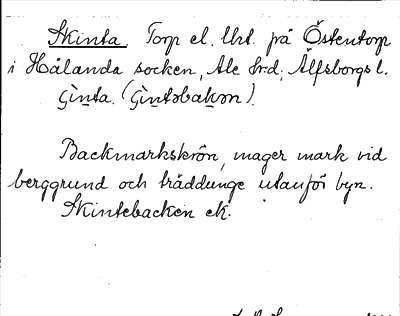 Skinta. Torp el. lht. på Östentorp
i Hålanda socken, Ale hrd, Älfsborgs l.
Ġinta. (Ġintəbakən).
Backmarkskrön, mager mark vid
berggrund och träddunge utanför byn.
Skintebacken ek.